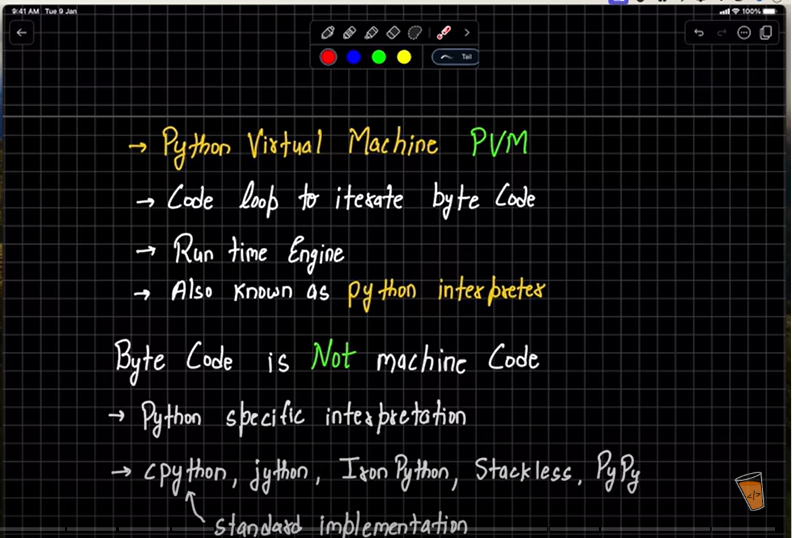 9:41 AM Tue 9 Jan 100%
Tail
→ Python Virtual Machine PVM
→ Code loop to iterate byte Code
→ Run time Engine
→ Also known as python interpreter
Byte Code is Not machine Code
→ Python specific interpretation
→ cpython, jython, Iron Python, Stackless, PyPy
standard implementation
</>